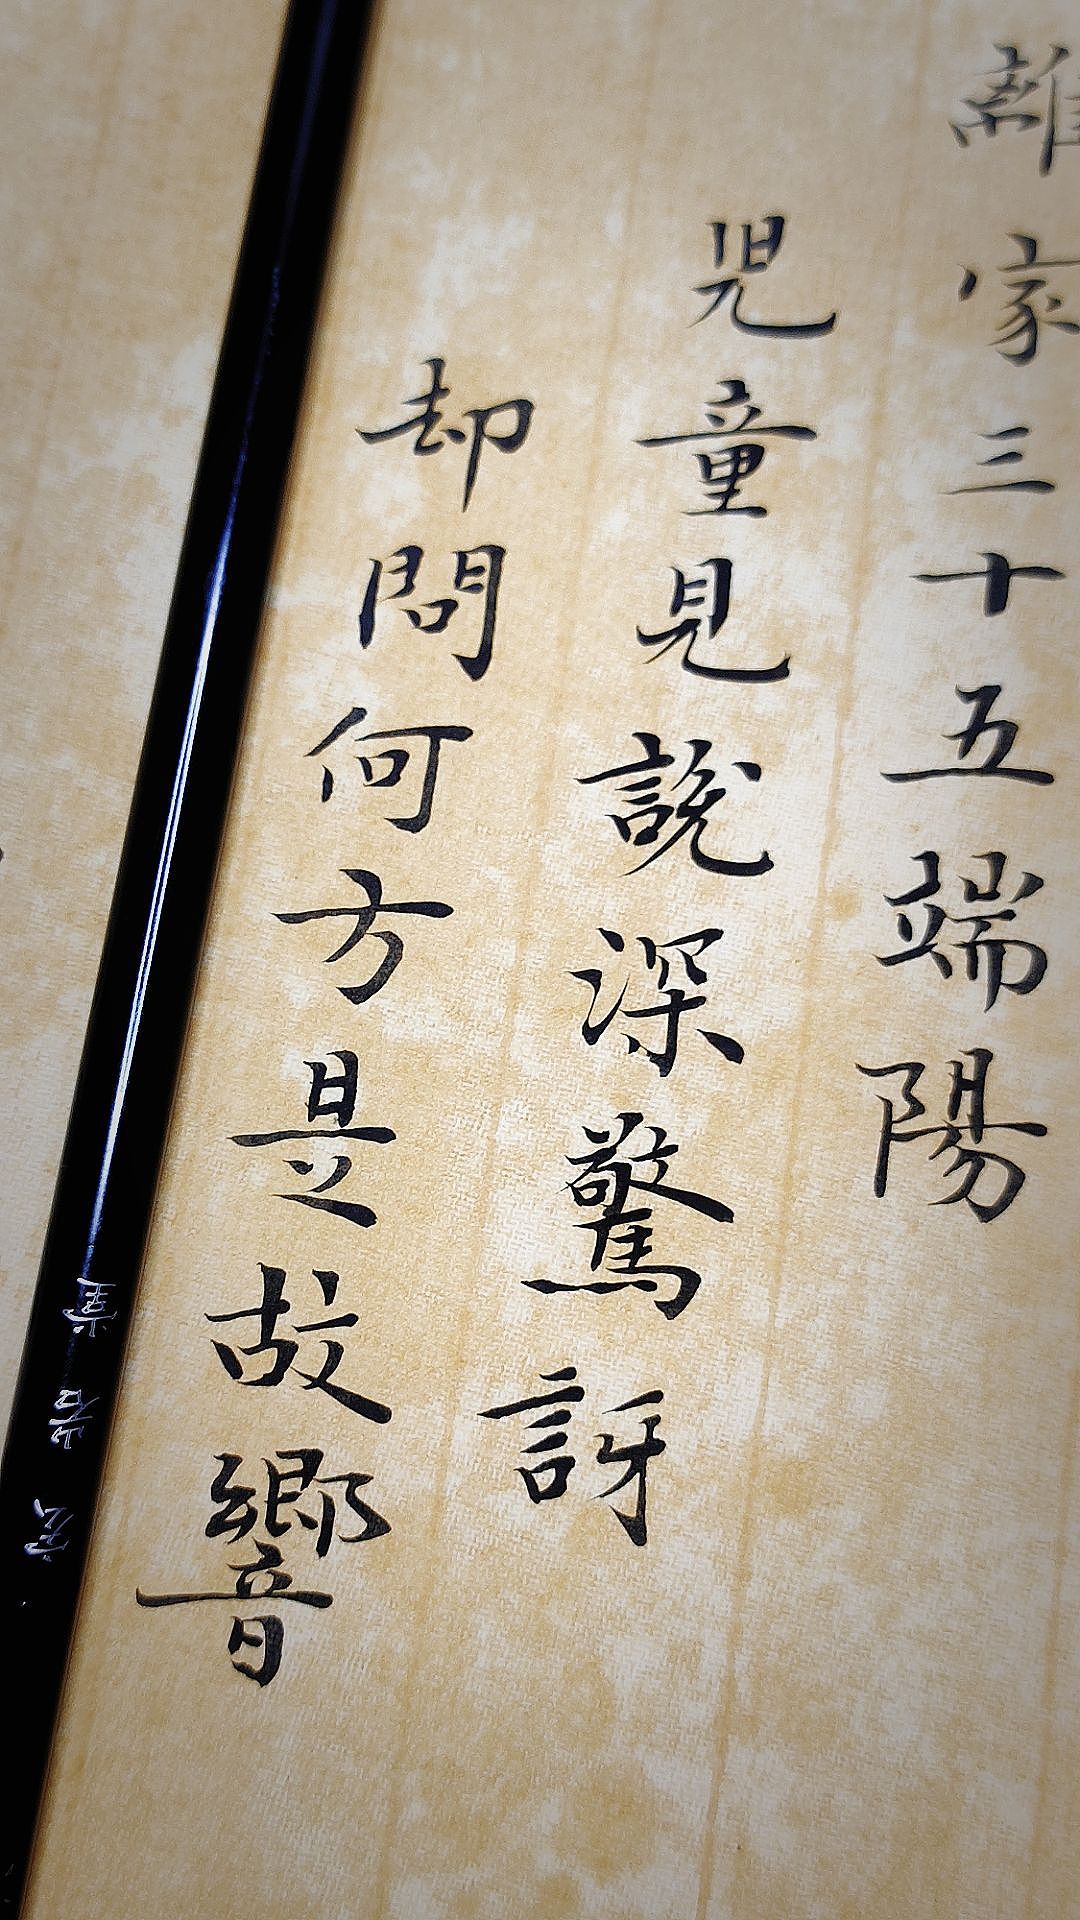 離家三十五端陽
児童見説深驚訝
却問何方是故響